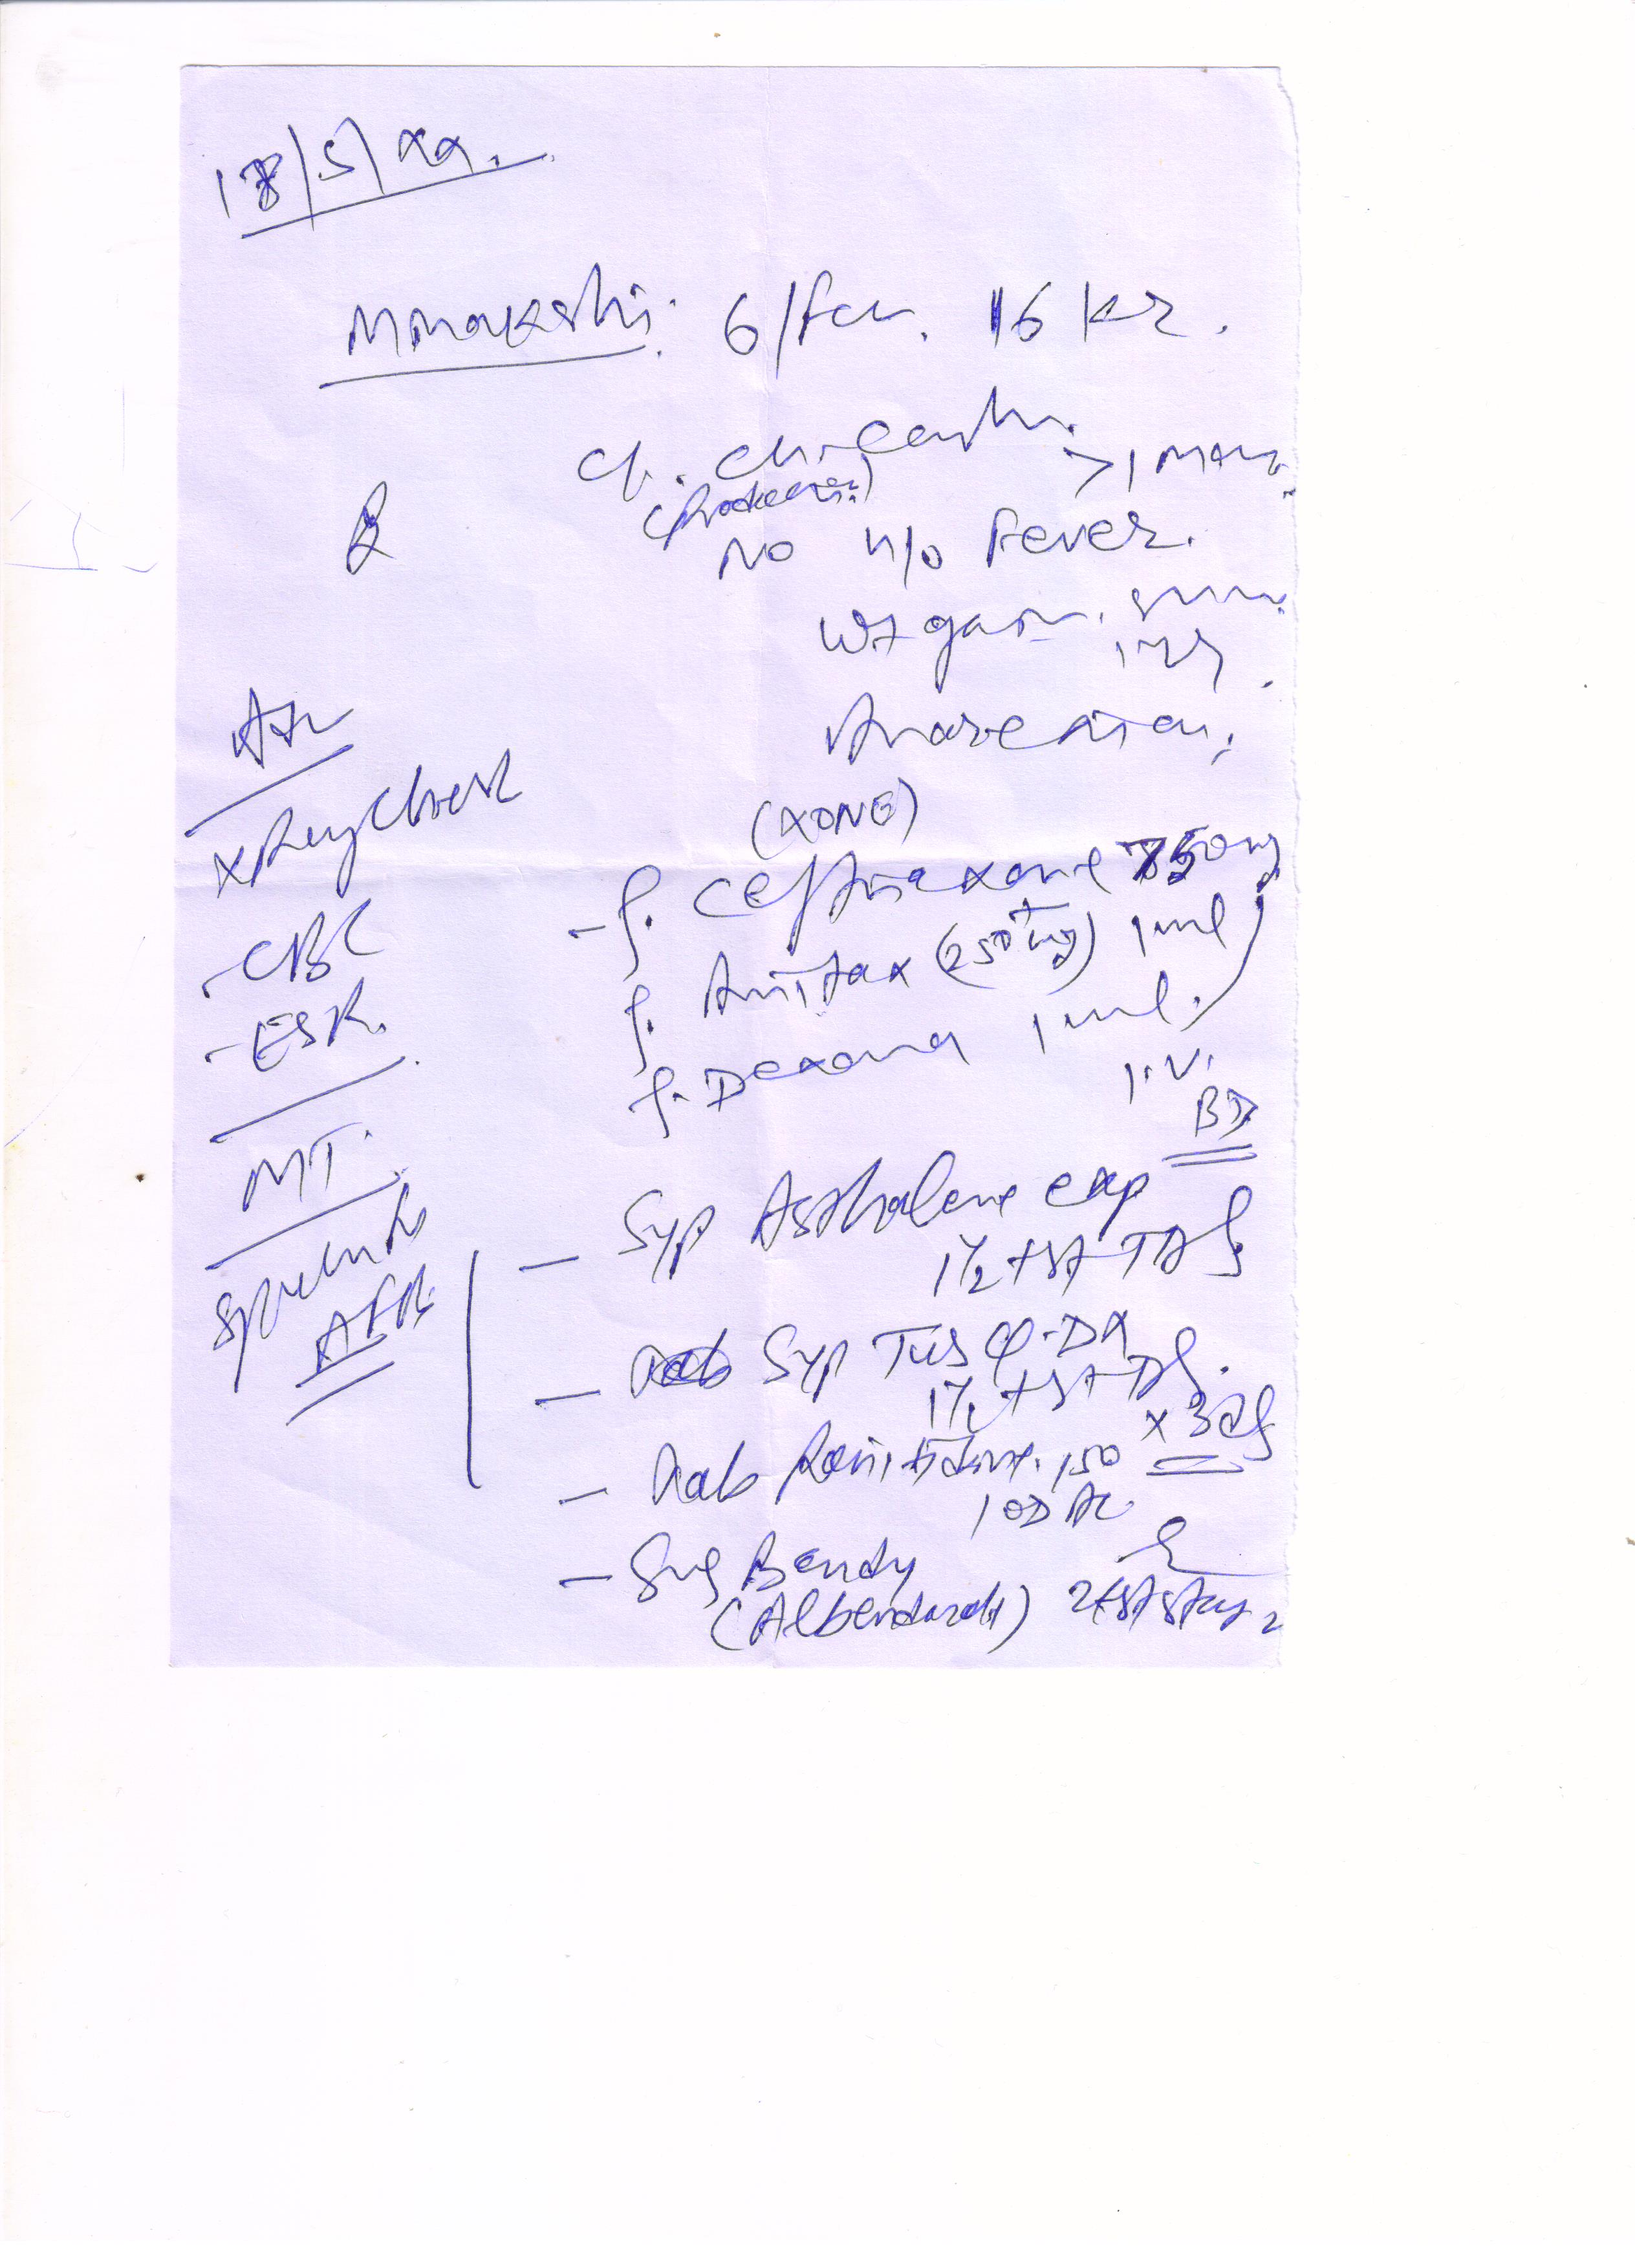 18/5/22.
Minakshi. 6/fem. 16 kg.
c/o. ch. cough.
>1 Month
(Productive)
No h/o Fever.
Wt gain.
1 yr.
Anorexia
Adv
X Ray Chest
- CBC
- ESR.
MT.
Sputum for
AFB
(XONE)
- I. Ceftriaxone 750mg
+
I. Amitax (250mg) 1ml
I. Dexona 1ml.
I.V.
BD
- Syp Asthalene exp
1½ tsf TDS
- Syp Tus Q-DX
1½ tsf TDS.
x 3 days
- Tab Ranitidine. 150
1 OD AC
- Syp Bendy
(Albendazole) 2 tsf stat